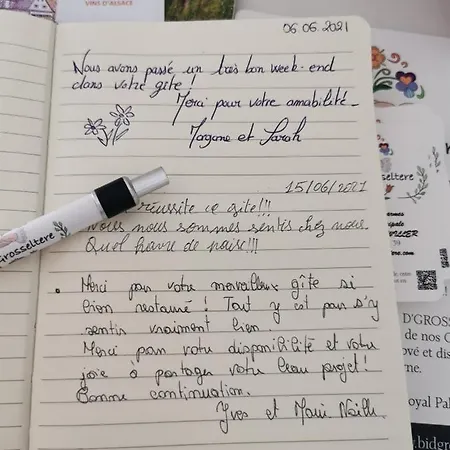 VINS D'ALSACE
06.06.2021
Nous avons passé un très bon week-end
dans votre gîte !
Merci pour votre amabilité.
Morgane et Sarah
15/06/2021
réussite ce gîte!!!
Nous nous sommes sentis chez nous.
Quel havre de paix!!!
. Merci pour votre merveilleux gîte si
bien restauré ! Tout y est pour s'y
sentir vraiment bien.
Merci pour votre disponibilité et votre
joie à partager votre beau projet!
Bonne continuation.
Yves et Marie Noëlle
Grosseltere
D'GROSS
de nos G
ové et dis
rne.
oyal Pal
www.bidgro